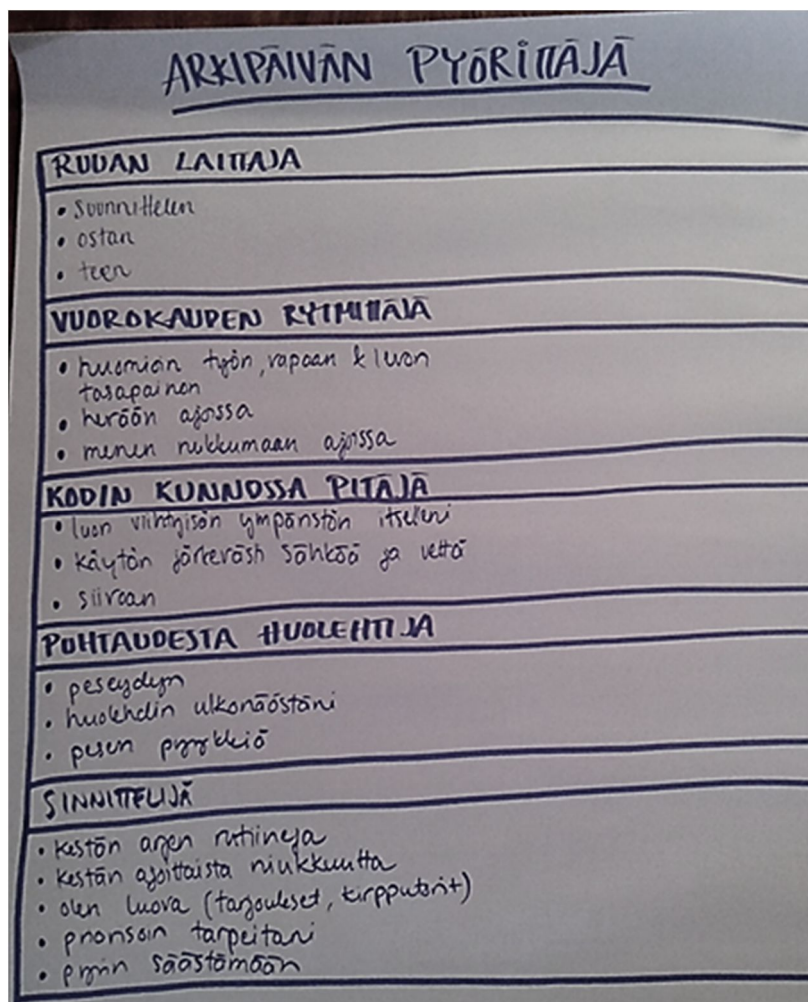 ARKIPÄIVÄN PYÖRITTÄJÄ
RUUAN LAITTAJA
• suunnittelen
• ostan
• teen
VUOROKAUDEN RYTMITTÄJÄ
• huomioin työn, vapaan & luvon
tasapainon
• herään ajoissa
• menen nukkumaan ajoissa
KODIN KUNNOSSA PITÄJÄ
• luon viihtyisän ympäristön itselleni
• käytän järkevästi sähköä ja vettä
• siivoan
PUHTAUDESTA HUOLEHTIJA
• peseydyn
• huolehdin ulkonäöstäni
• pesen pyykkiä
SINNITTELIJÄ
• kestän arjen rutiineja
• kestän ajoittaista niukkuutta
• olen luova (tarjoukset, kirpputorit)
• priorisoin tarpeitani
• pyrin säästämään